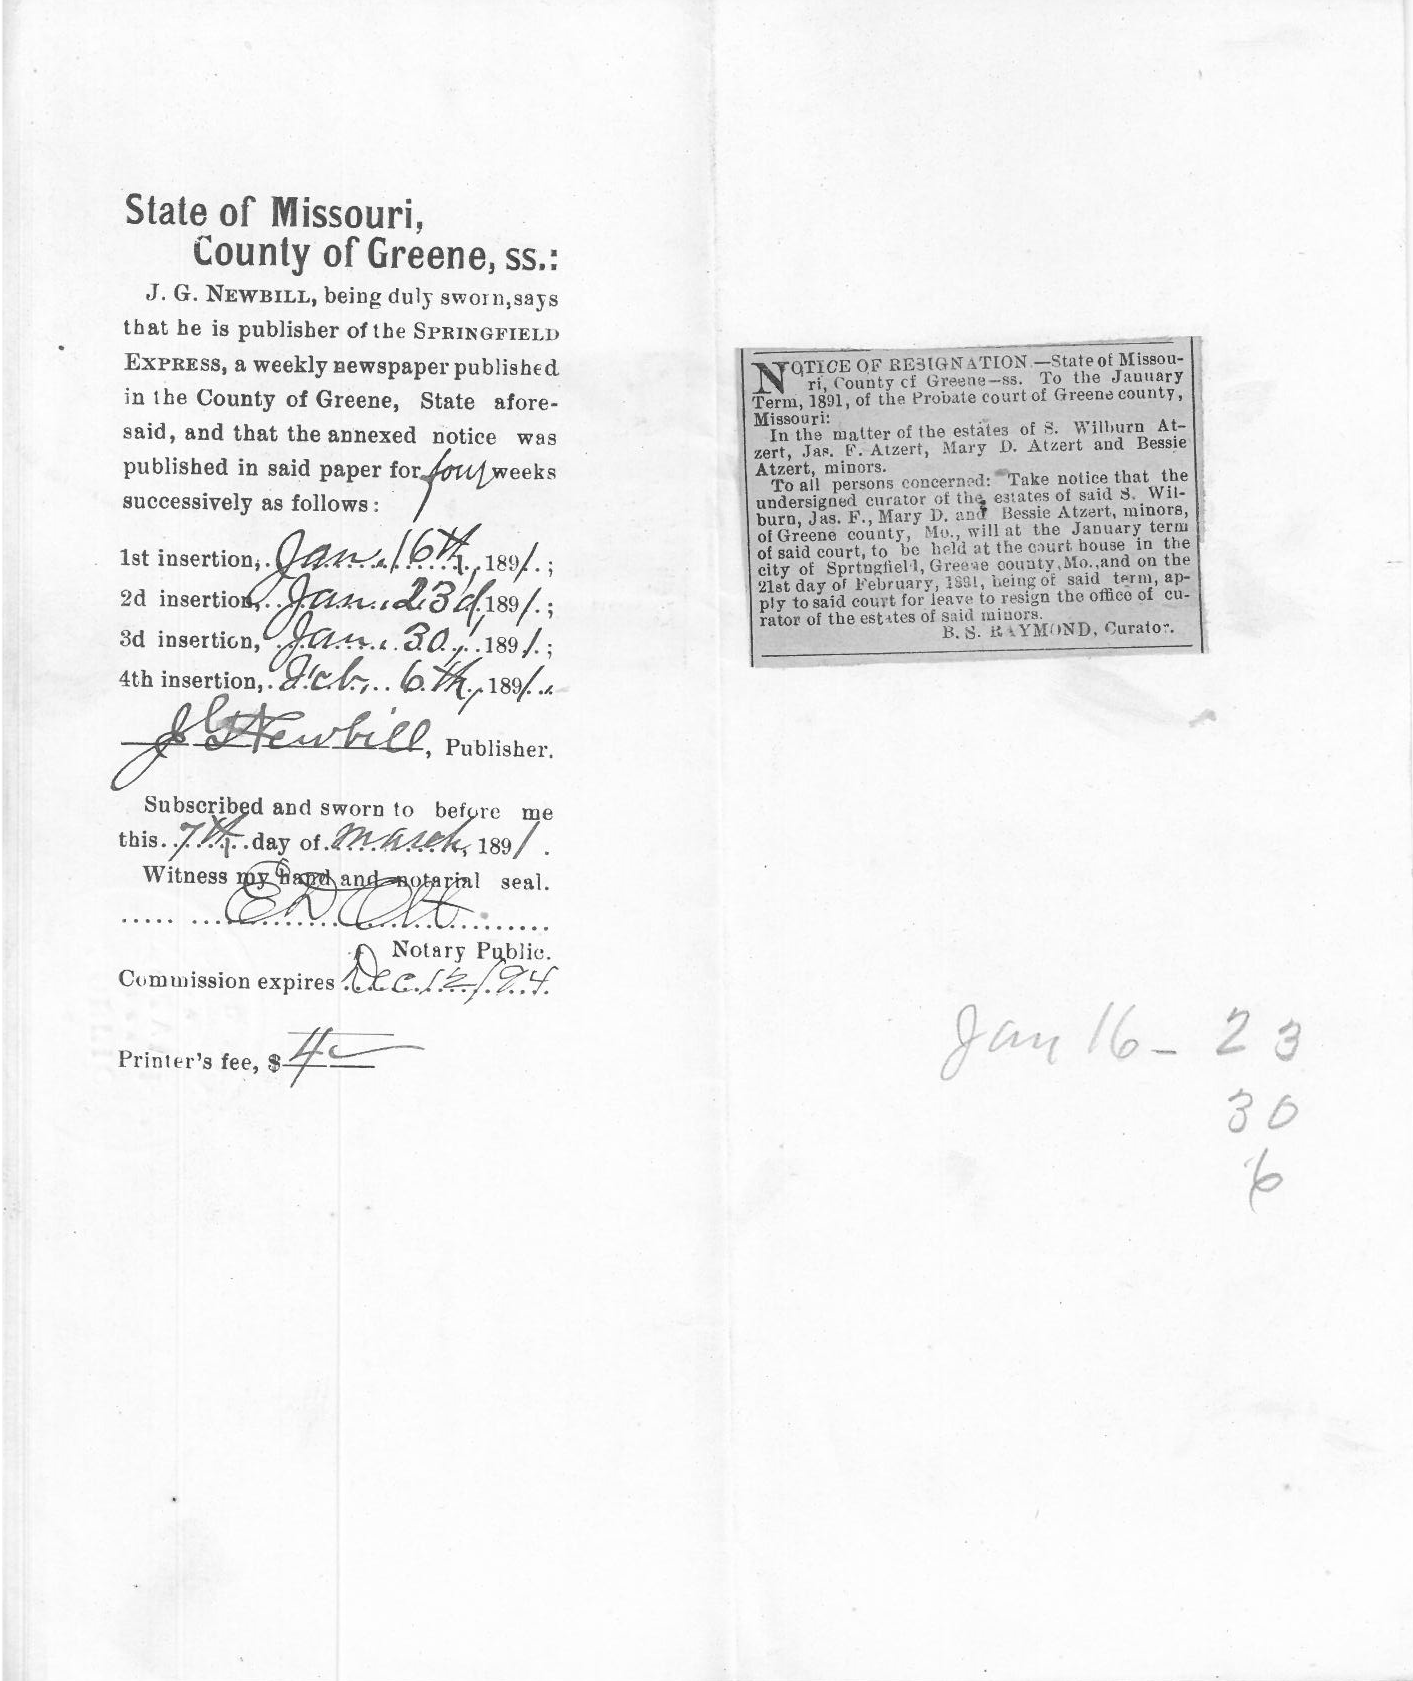 State of Missouri,
County of Greene, ss.:
J. G. NEWBILL, being duly sworn, says
that he is publisher of the SPRINGFIELD
EXPRESS, a weekly newspaper published
in the County of Greene, State afore-
said, and that the annexed notice was
published in said paper for four weeks
successively as follows:
1st insertion, Jan. 16th, 1891.;
2d insertion, Jan. 23d, 1891.;
3d insertion, Jan. 30, 1891.;
4th insertion, Feb. 6th, 1891.
J G Newbill, Publisher.
Subscribed and sworn to before me
this 7th day of March, 1891.
Witness my hand and notarial seal.
E D Ott
Notary Public.
Commission expires Dec. 12/94.
Printer's fee, $4
NOTICE OF RESIGNATION.—State of Missou-
ri, County of Greene—ss. To the January
Term, 1891, of the Probate court of Greene county,
Missouri:
In the matter of the estates of S. Wilburn At-
zert, Jas. F. Atzert, Mary D. Atzert and Bessie
Atzert, minors.
To all persons concerned: Take notice that the
undersigned curator of the estates of said S. Wil-
burn, Jas. F., Mary D. and Bessie Atzert, minors,
of Greene county, Mo., will at the January term
of said court, to be held at the court house in the
city of Sprtngfield, Greene county, Mo., and on the
21st day of February, 1891, being of said term, ap-
ply to said court for leave to resign the office of cu-
rator of the estates of said minors.
B. S. RAYMOND, Curator.
Jan 16 - 23
30
6